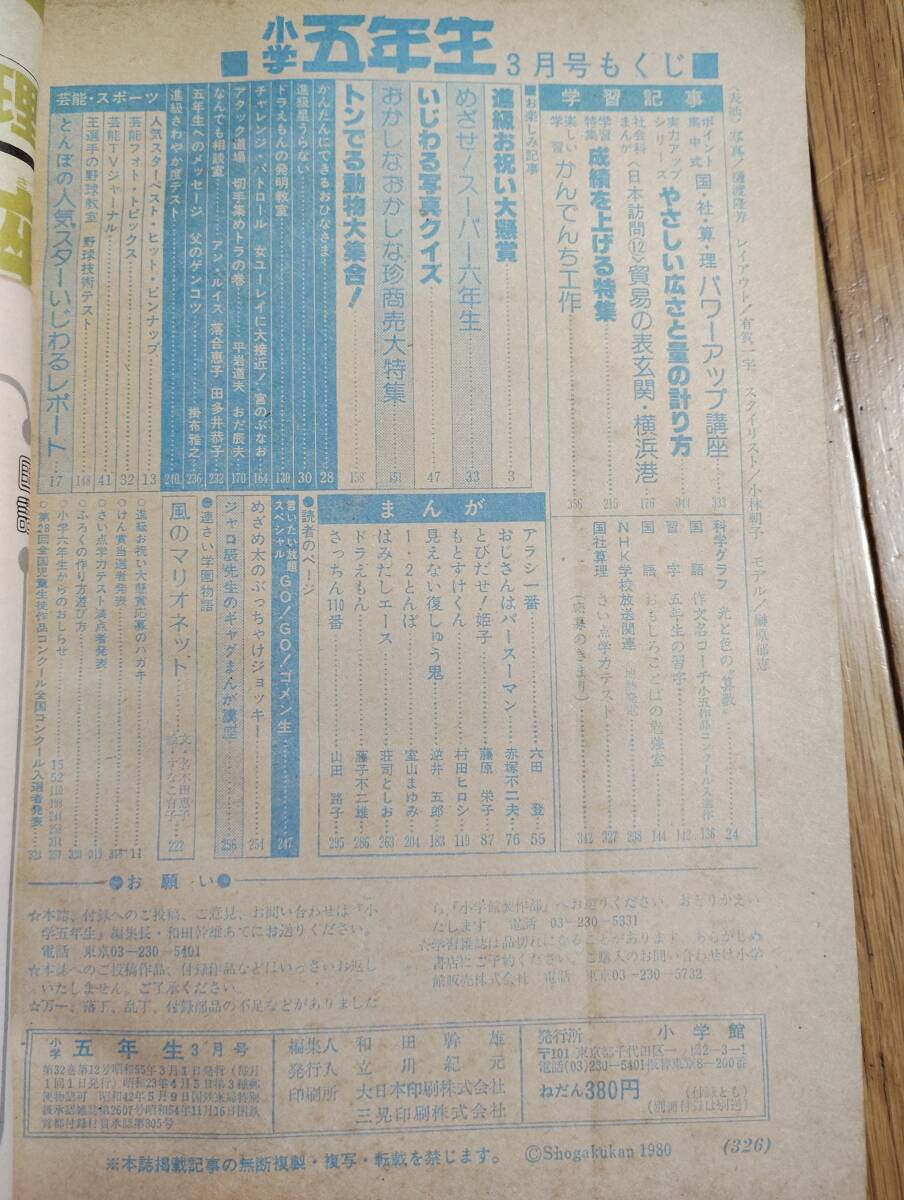 小学五年生 3月号もくじ
〈表紙〉写真／薩渡隆房 レイアウト／有賀一宇 スタイリスト／小林朝子 モデル／榊原郁恵
学習記事
ポイント集中式 国・社・算・理 パワーアップ講座 333
実力アップシリーズ やさしい広さと量の計り方 344
社会科まんが 〈日本訪問⑫〉貿易の表玄関・横浜港 176
学習特集 成績を上げる特集 215
楽しい学習 かんでんち工作 356
科学グラフ 光と色の算数 24
国語 作文名コーチ 136
習字 五年生の習字 142
国語 おもしろことばの勉強室 144
NHK学校放送関連 238
国社算理 さい点学力テスト 327
(応募のきまり) 342
■お楽しみ記事
進級お祝い大懸賞 3
めざせ！スーパー六年生 33
いじわる写真クイズ 47
おかしなおかしな珍商売大特集 151
トンでる動物大集合！ 158
かんたんにできるおひなさま 28
進級星うらない 30
ドラえもんの発明教室 139
チャレンジ・パトロール 女ユーレイに大接近！ 宮のぶなお 164
アタック道場 切手集めトラの巻 平岩道夫 おだ辰夫 170
なんでも相談室 アン・ルイス 落合恵子 田多井恭子 232
五年生へのメッセージ 父のゲンコツ 掛布雅之 236
進級さわやか度テスト 240
芸能・スポーツ
人気スターベスト・ヒット・ピンナップ 13
芸能フォト・トピックス 32
芸能TVジャーナル 41
王選手の野球教室 野球技術テスト 148
とんぼの人気スターいじわるレポート 17
まんが
アラシ一番 六田 登 55
おじさんはパースーマン 赤塚不二夫 76
とびだせ！姫子 藤原 栄子 87
もとすけくん 村田ヒロシ 119
見えない復しゅう鬼 逆井 五郎 183
1・2とんぼ 室山まゆみ 204
はみだしエース 荘司としお 263
ドラえもん 藤子不二雄 286
さっちん110番 山田 路子 295
●読者のページ
言いたい放題スペシャル GO！GO！ゴメン生 247
めざめ太のぶっちゃけジョッキー 254
ジャロ辰先生のギャグまんが講座 256
●連さい学園物語
風のマリオネット 文・名木田恵子 222
○進級お祝い大懸賞応募のハガキ 11
○けん賞当選者発表
○さい点学力テスト満点者発表 319
○ふろくの作り方遊び方
○小学六年生からのおしらせ
○第28回全国児童生徒作品コンクール全国コンクール入選者発表 324
お願い
☆本誌、付録へのご投稿、ご意見、お問い合わせは『小
学五年生』編集長・和田幹雄あてにお送りください。
電話 東京03－230－5401
☆本誌へのご投稿作品、付録作品などはいっさいお返し
いたしません。ご了承ください。
☆万一、落丁、乱丁、付録部品の不足などがありました
ら、「小学館製作部」へお送りください。おとりかえい
たします 電話 03－230－5331
☆学習雑誌は品切れになることがあります。あらかじめ
書店にご予約ください。ご購入のお問い合わせは小学
館販売株式会社 電話 東京03－230－5732
小学五年生3月号
第32巻第12号昭和55年3月1日発行（毎月
1回1日発行）昭和23年4月5日第3種郵
便物認可 昭和42年5月9日国鉄東局特別
扱承認雑誌第2607号昭和54年11月16日国鉄
首都付録材質承認第305号
編集人 和田幹雄
発行人 立川紀元
印刷所 大日本印刷株式会社
三晃印刷株式会社
発行所 小学館
〒101 東京都千代田区一ツ橋2－3－1
電話(03)230－5401振替東京8－200番
ねだん380円 (付録とも)(別冊付録は別送)
※本誌掲載記事の無断複製・複写・転載を禁じます。 ©Shogakukan 1980
(326)